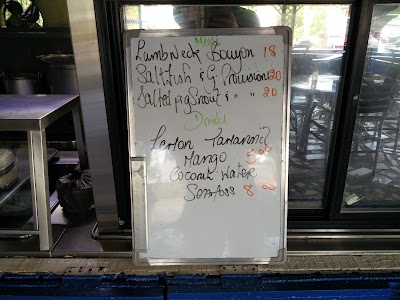 Meals
Lamb Neck Bouyon 18
Saltfish & G Provisions 20
Salted pig Snout " " " 20
Drinks
Lemon Tamarind
Mango 5.00
Coconut Water
Seamoss 8.00